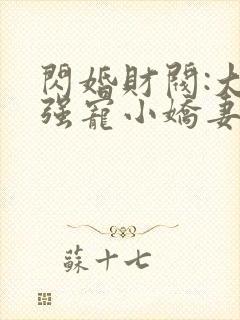 閃婚財閥:大
强寵小嬌妻
蘇十七